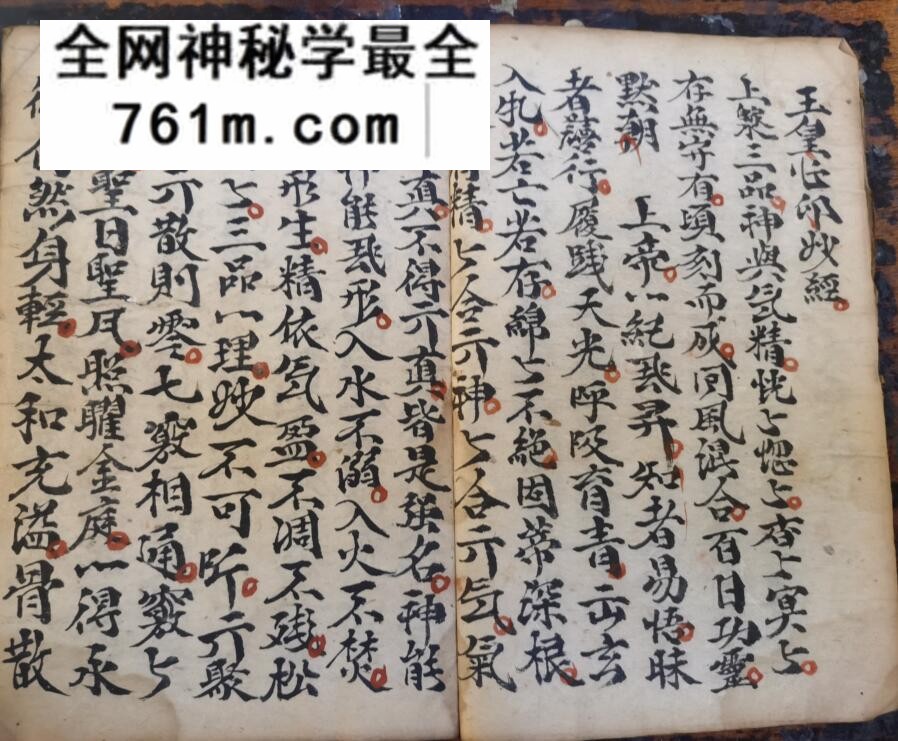 全网神秘学最全
761m.com
玉皇心印妙經
上藥三品神與氣精恍々惚々杳々冥々
存無守有頃刻而成囘風混合百日功靈
默朝 上帝一紀飛昇知者易悟昧
者難行履踐天光呼吸育青出玄
入牝若亡若存綿々不絕固蒂深根
精々合亓神々合亓氣氣
真不得亓真皆是強名神能
能飛形入水不溺入火不焚
形生精依氣盈不凋不殘松
々三品一理妙不可听亓聚
亓散則零七竅相通竅々
聖日聖月照耀金庭一得永
然身輕太和充溢骨散